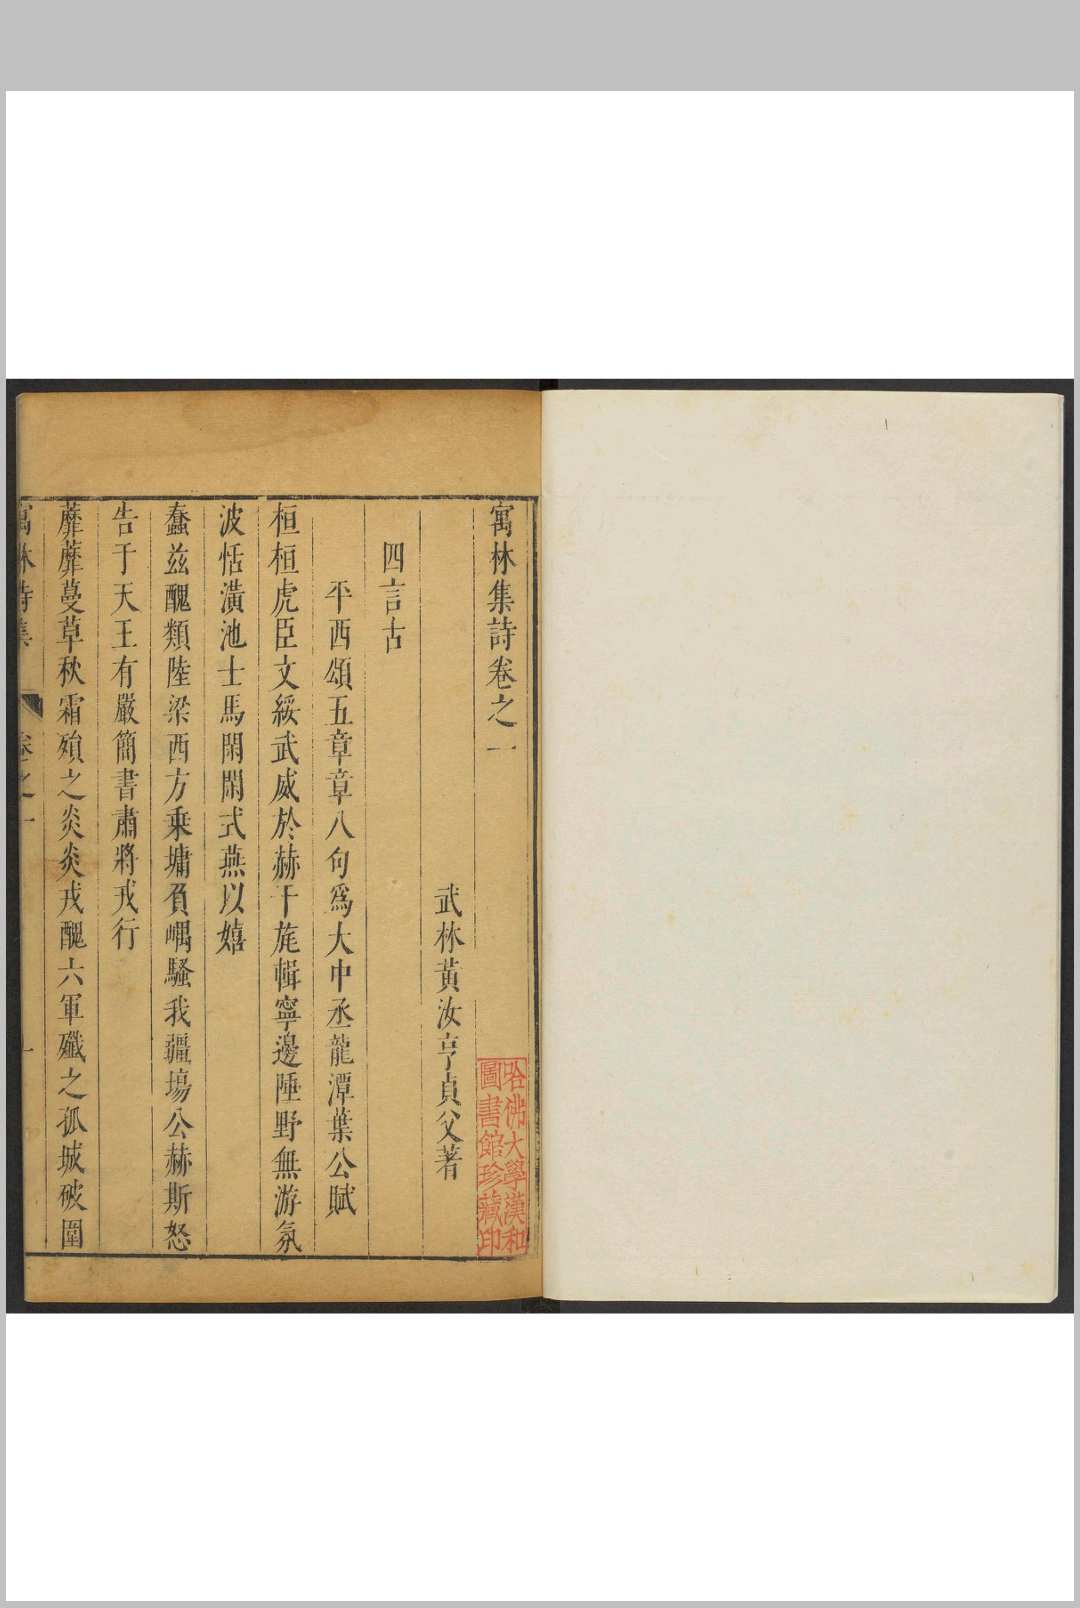 寓林集詩卷之一
武林黃汝亨貞父著
四言古
平西頌五章章八句爲大中丞龍潭葉公賦
桓桓虎臣文綏武威於赫干旄輯寧邊陲野無游氛
波恬潢池士馬閑閑式燕以嬉
蠢兹醜類陸梁西方乗墉負嵎騷我疆埸公赫斯怒
告于天王有嚴簡書肅將戎行
蘼蘼蔓草秋霜殞之炎炎戎醜六軍殲之孤城破圍
寓林詩集 卷之一 一
哈佛大學漢和
圖書館珍藏印